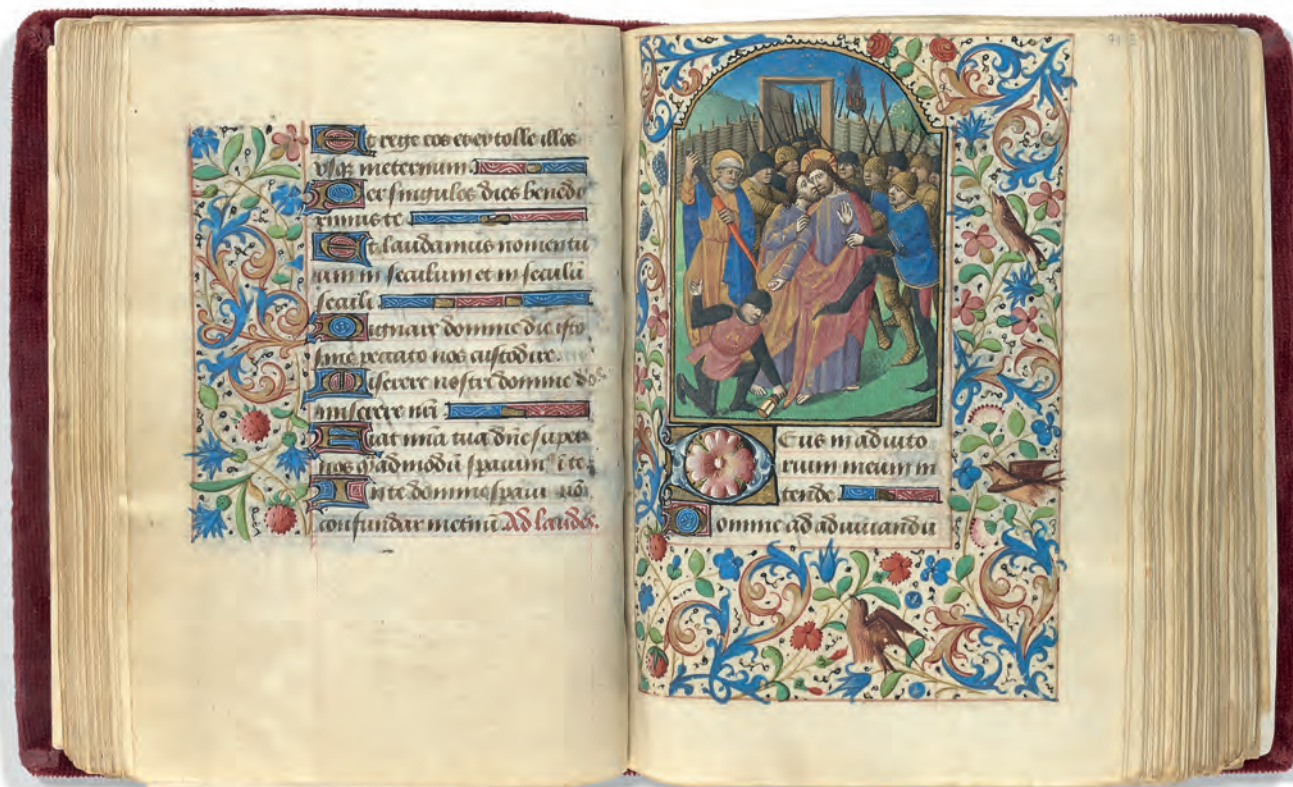 Et rege eos et extolle illos
usq; ineternum
Per singulos dies benedi
cimus te
Et laudamus nomen tu
um in seculum et in seculū
seculi
Dignare domine die isto
sine peccato nos custodire
Miserere nostri domine
miserere nrī
Fiat mīa tua dn̄e super
nos q̄admodū sperauim⁹ ī te
In te domine speraui nō
confundar ineternū Ad laudes.
Deus in adiuto
rium meum in
tende
Domine ad adiuuandū